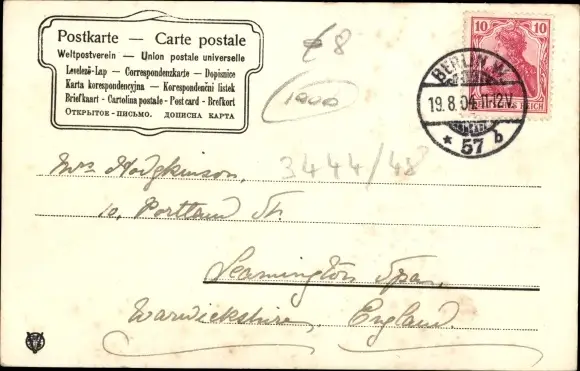 Postkarte — Carte postale
Weltpostverein — Union postale universelle
Levelező-Lap — Correspondenzkarte — Dopisnice
Karta korespondencyjna — Korespondenční lístek
Briefkaart - Cartolina postale - Post card - Brefkort
ОТКРЫТОЕ - ПИСЬМО. ДОПИСНА КАРТА
€8
1000
10 10
REICH
BERLIN W.
19.8.04.11-12V.
* 57 b
3444/48
Mrs Hodgkinson,
10, Portland St.
Leamington Spa,
Warwickshire, England.